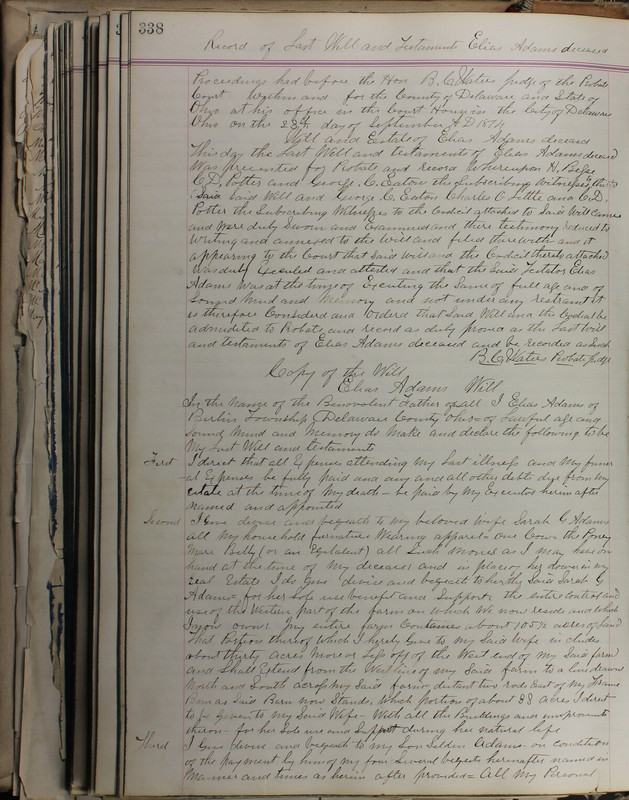 338
Record of Last Will and Testament Elias Adams deceased
Proceedings had before the Hon B. C. Waters Judge of the Probate
Court within and for the County of Delaware and State of
Ohio at his office in the Court House in the City of Delaware
Ohio on the day of September A D
Will and Estate of Elias Adams deceased
This day the Last Will and testament of Elias Adams deceased
was presented for Probate and Record Whereupon H.
C. D. Potter and George. C. Eaton the Subscribing Witnesses to
Said Will and George. C. Eaton Charles C. Little and C. D.
Potter the Subscribing Witnesses to the Codicil attached to Said Will came
and were duly Sworn and Examined and there testimony reduced to
Writing and annexed to the Will and filed therewith and it
appearing to the Court that Said Will and the Codicil thereto attached
Was duly Executed and attested and that the Said Testator Elias
Adams Was at the time of Executing the Same of full age and of
Sound Mind and Memory and not under any restraint it
is therefore Considered and Ordered that Said Will and the Codicil be
admitted to Probate and record as duly proved as the Last Will
and testament of Elias Adams deceased and be recorded as Such
B. C. Waters Probate Judge
Copy of the Will
Elias Adams Will
In the Name of the Benevolent Father of all I Elias Adams of
Berlin Township Delaware County Ohio of Lawful age and
Sound Mind and Memory do Make and declare the following to be
My Last Will and testament
First I direct that all Expenses attending My Last illness and My funer
al Expenses be fully paid and any and all other debts due from my
estate at the time of My death be paid by My Executor herein after
Named and appointed
Second I Give devise and bequeath to my beloved Wife Sarah G Adams
all My household furniture Wearing apparel One Cow the Poney
Mare Betty (or an Equivalent) all Such Monies as I may have on
hand at the time of My decease and in place of her dower in my
real Estate I do Give devise and bequeath to her the Said Sarah G
Adams for her Sole use benefit and Support the entire control and
use of the Western part of the farm on which We now reside and Which
I now own My entire farm Contains about 105½ acres of land
That Portion thereof Which I hereby Give to My Said Wife includes
about thirty acres More or Less off of the West end of My Said farm
and Shall Extend from the West line of My Said farm to a line drawn
North and South across My Said farm distant two rods East of My Frame
Barn as Said Barn now Stands, Which portion of about 33 acres I direct
to be Given to My Said Wife With all the Buildings and improvements
thereon for her Sole use and Support during her natural life
Third I Give devise and bequeath to My Son Selden Adams on condition
of the payment by him of my four Several bequests hereinafter named in
Manner and times as herein after provided All My Personal